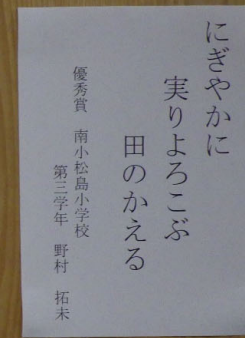 にぎやかに
実りよろこぶ
田のかえる
優秀賞　南小松島小学校
第三学年　野村　拓未